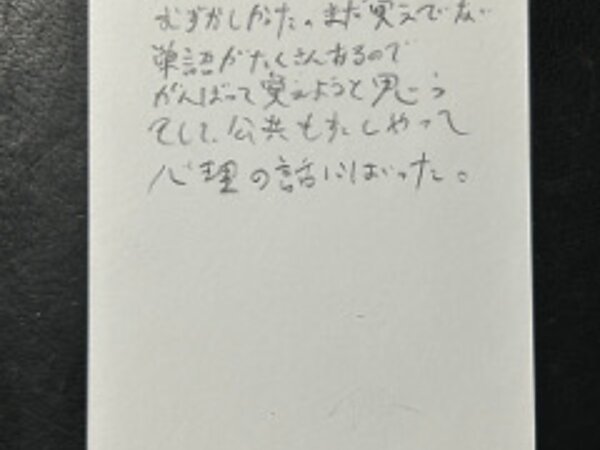 むずかしかった。まだ覚えてない
単語がたくさんあるので
がんばって覚えようと思う
そして、公共もすこしやって
心理の話にはいった。